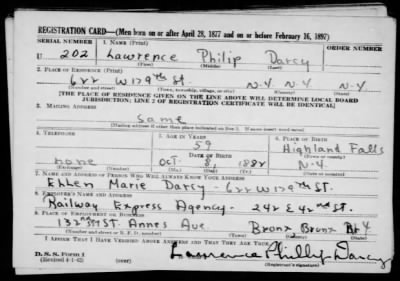 REGISTRATION CARD—(Men born on or after April 28, 1877 and on or before February 16, 1897)
SERIAL NUMBER 1. NAME (Print) ORDER NUMBER
U 202 Lawrence Philip Darcy
(First) (Middle) (Last)
2. PLACE OF RESIDENCE (Print)
622 W 179th St. N.Y. N.Y. N.Y.
(Number and street) (Town, township, village, or city) (County) (State)
[THE PLACE OF RESIDENCE GIVEN ON THE LINE ABOVE WILL DETERMINE LOCAL BOARD
JURISDICTION; LINE 2 OF REGISTRATION CERTIFICATE WILL BE IDENTICAL]
3. MAILING ADDRESS
Same
[Mailing address if other than place indicated on line 2. If same insert word same]
4. TELEPHONE 5. AGE IN YEARS 6. PLACE OF BIRTH
59 Highland Falls
DATE OF BIRTH (Town or county)
none Oct. 8, 1882 N.Y.
(Exchange) (Number) (Mo.) (Day) (Yr.) (State or country)
7. NAME AND ADDRESS OF PERSON WHO WILL ALWAYS KNOW YOUR ADDRESS
Ellen Marie Darcy - 622 W 179th St.
8. EMPLOYER'S NAME AND ADDRESS
Railway Express Agency - 242 E 42nd St.
9. PLACE OF EMPLOYMENT OR BUSINESS
132nd St. Annes Ave. Bronx Bronx N.Y
(Number and street or R. F. D. number) (Town) (County) (State)
I AFFIRM THAT I HAVE VERIFIED ABOVE ANSWERS AND THAT THEY ARE TRUE.
D. S. S. Form 1
(Revised 4-1-42) (over) Lawrence Phillip Darcy
(Registrant's signature)